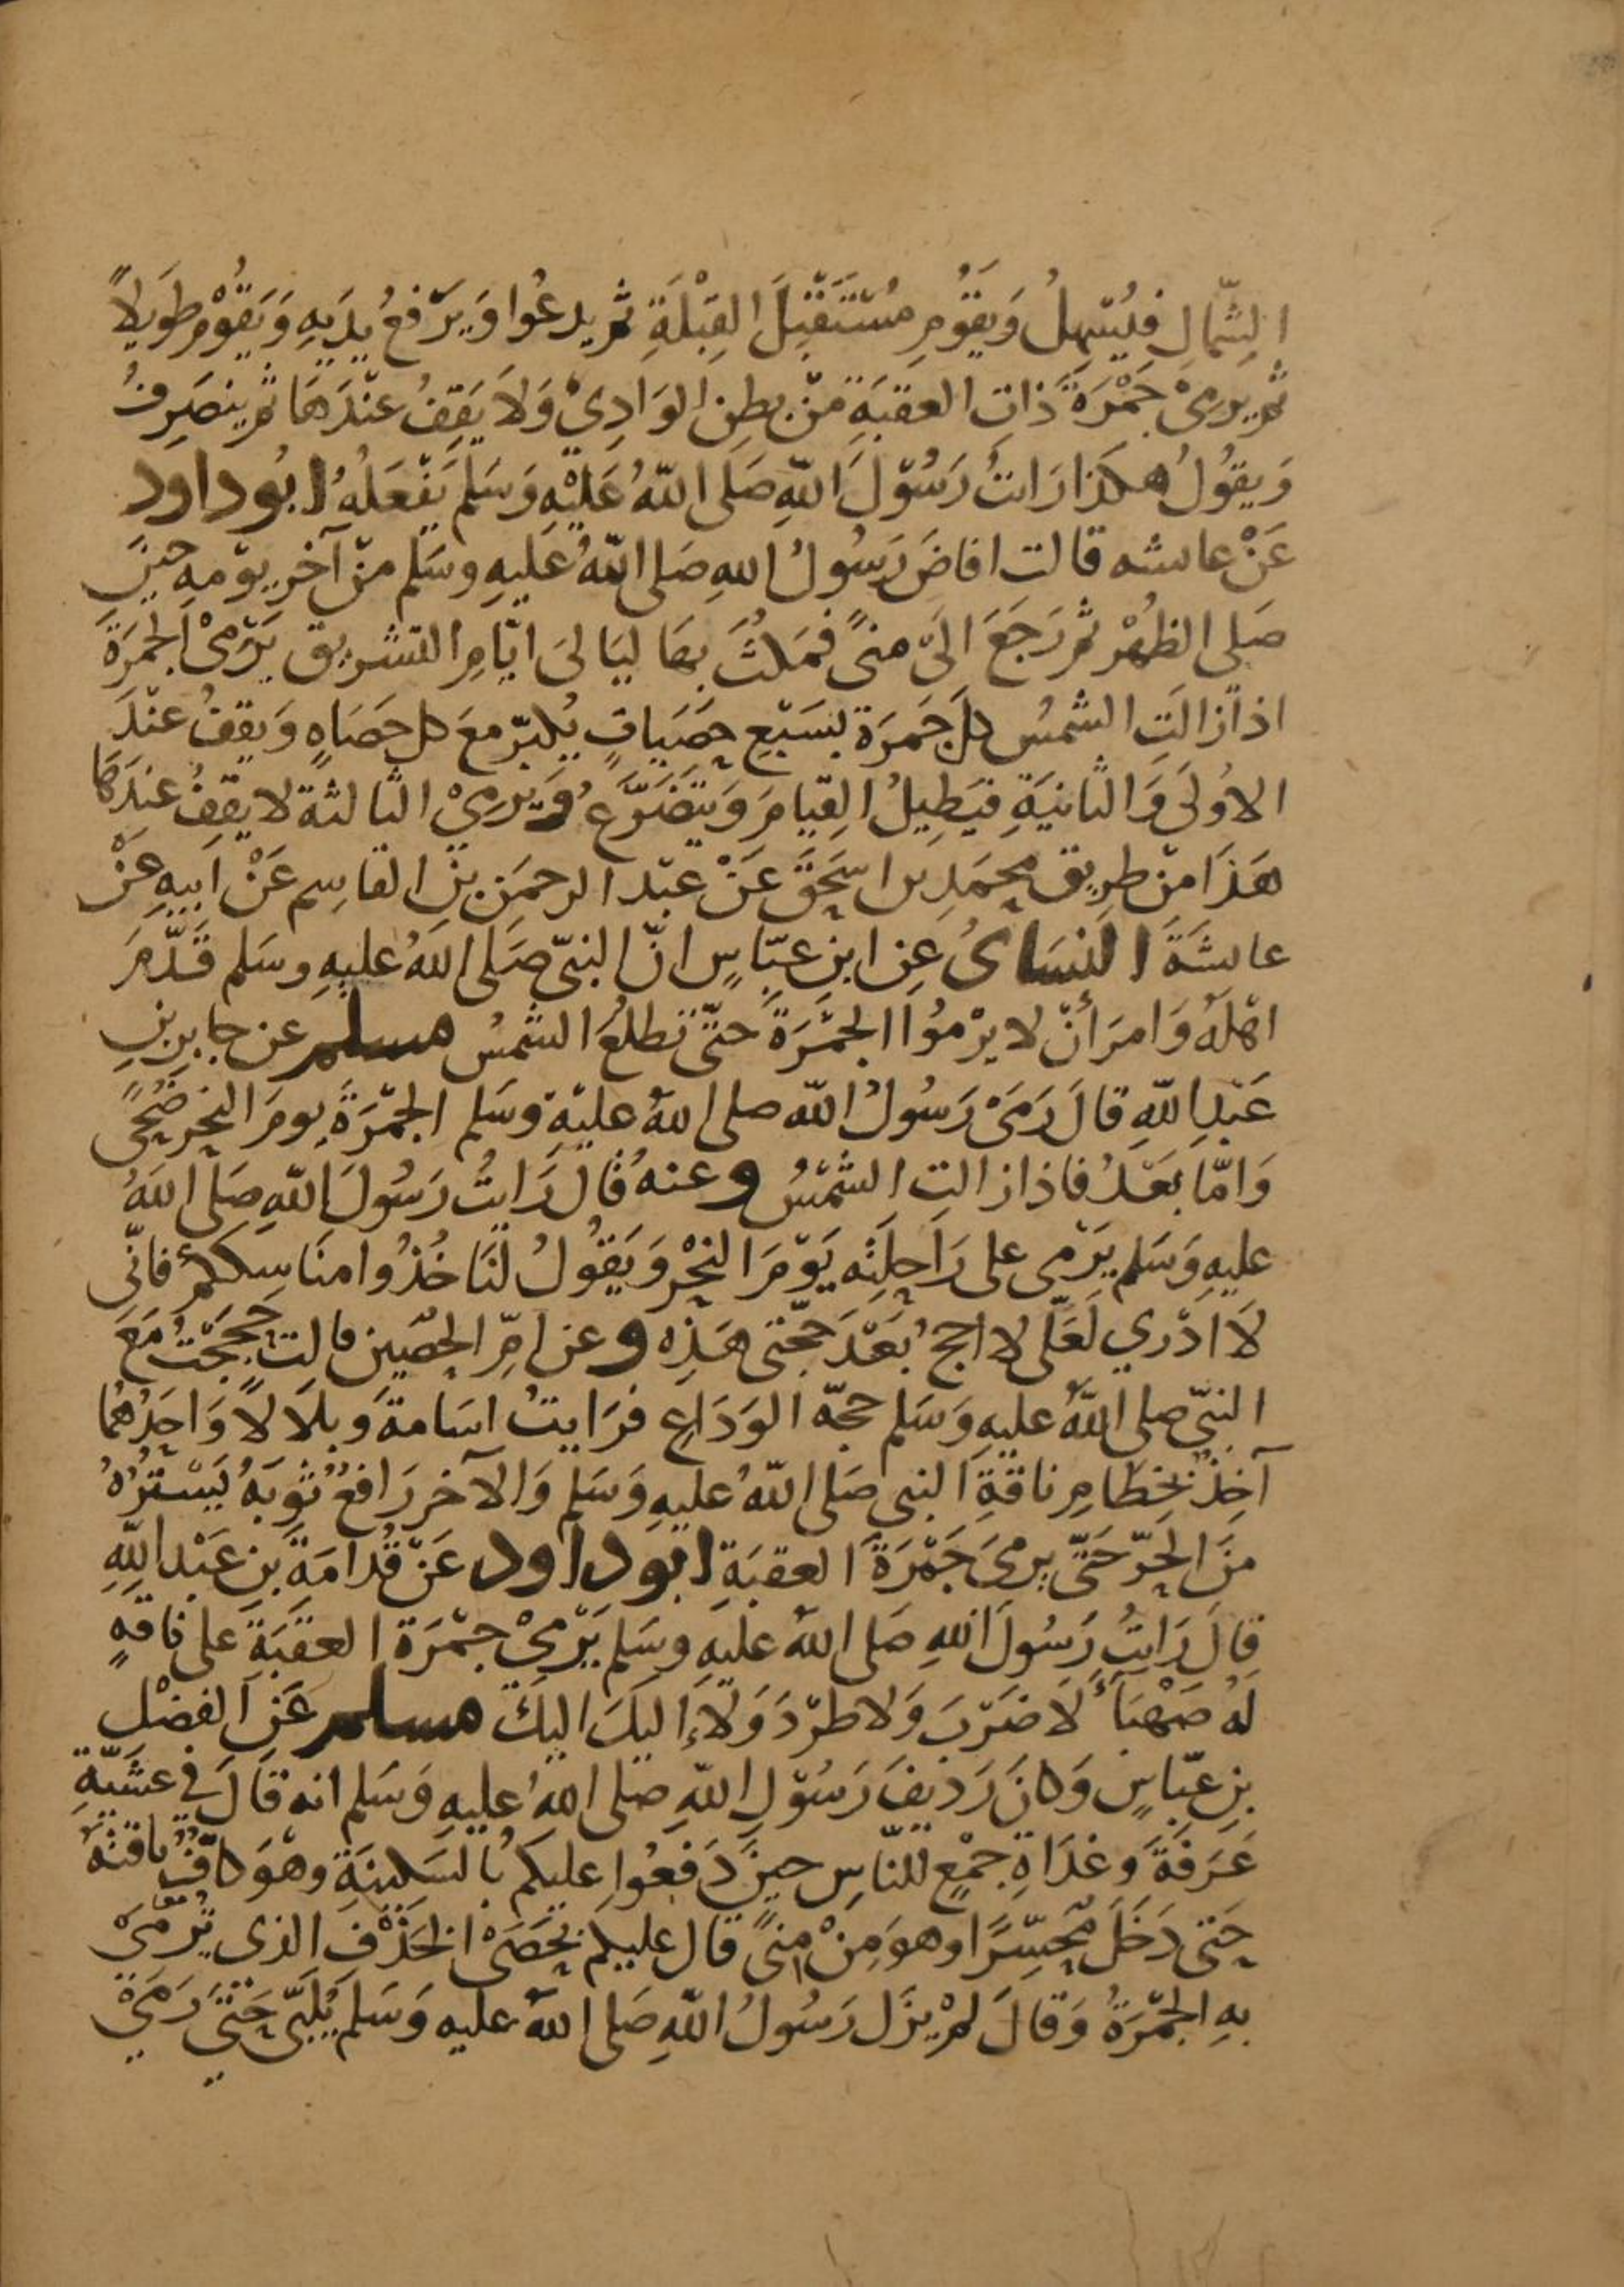 الشِّمَالِ فيُسْهِلُ وَيَقُومِ مُسْتَقْبِلَ القِبْلَةِ ثم يدعُوا وَيَرْفعُ يدَيهِ وَيَقُوْم طَوِيلاً
ثم يرمىْ جَمْرَةَ ذَات العقبَةِ منْ بطنِ الوَادِيْ وَلاَ يَقِفُ عنْدَهَا ثم ينصَرِفُ
وَيقُولُ هكذَا رَاتُ رَسُوْلَ اللّهِ صَلَى اللّهُ عَلَيْهِ وَسَلم يَفْعَلهُ ابُو داود
عَنْ عاىشه قالت افاضَ رَسُولُ اللهِ صَلى اللّهُ عَليهِ وسَلم منْ آخرِ يوْمِه حينَ
صَلى الظهْرَ ثم رَجَعَ الَىْ منىً فمَكثَ بهَا ليَالىَ ايّامِ التشريق يَرْمىْ الجمرَةَ
اذا زالَتِ الشمسُ كلَ جَمَرَة بسَبْعِ حصَيَاتٍ يُكبّر معَ كل حَصَاهٍ وَيقفُ عنْدَ
الاوُلىَ وَالثانيَةِ فيَطِيلُ القِيَامَ وَيَتَضَرَّعُ وَيَرْمىْ الثَالثة لا يقِفُ عندَهَا
هَذَا منْ طرِيق محمَدِ ىں اسحَقَ عَنْ عبْد الرحمَن بنِ القاسِم عَنْ ابيهِ عَنْ
عاىشَةَ النسَاىُ عنِ ابنِ عبّاسٍ انّ النبىّ صَلَى اللهُ عليهِ وسَلم قَدَّمَ
اهْلَهُ وَامرَ أنْ لا يرْمُوا الجَمْرَةَ حتّى تطلعَ الشمْسُ مسلم عن جابِر بنِ
عَبْدِ اللّهِ قالَ رَمَىْ رَسُولُ اللّه صلى اللهُ عليْهِ وسَلم الجمْرَةَ يومَ النحر ضُحىً
وَامّا بَعْدُ فاذا زالتِ الشمْسُ وعنهُ قالَ رَايتُ رَسُولَ اللّهِ صَلى اللهُ
عليهِ وَسَلم يَرْمى على رَاحِلَتِه يَوْمَ النحْرِ وَيَقُولُ لنَا خُذُوا منَاسِككمُ فانّى
لاَ ادْرِي لَعَلّى لا احجُ بَعْدَ حجّتى هَذِه وعن امِّ الحصَين قالت حَجَجْتُ مَعَ
النبىّ صلى اللّهُ عليهِ وَسَلم حجّه الوَدَاعِ فرَايتُ اسَامةَ وبلاَلاً وَاحَدُهُمَا
آخِذٌ بخِطَامِ ناقةِ النبى صَلى اللّهُ عليهِ وَسَلم وَالآخر رَافعٌ ثوبَهُ يَسْتُرُهُ
منَ الحَرّ حَتّى يرمىَ جَمْرَةَ العقبَةِ ابو داود عَنْ قُدامَةَ بنِ عَبْد اللّهِ
قالَ رَايتُ رَسُولَ اللهِ صَلى اللهُ عليهِ وسَلم يَرْمىْ جمْرَة العقبَةِ على ناقهٍ
لهُ صَهْبَاءُ لاَ ضَرْبَ وَلا طرْدَ وَلاَ إليكَ اليكَ مسلم عَنِ الفضْلِ
بنِ عبّاسٍ وَكانَ رَديفَ رَسُوْلِ اللّهِ صَلى اللهُ عليهِ وَسَلم انه قَالَ في عشيّةِ
عَرَفةَ وغدَاةِ جمْعٍ للنّاسِ حينَ دَفعُوا عليكم بالسَكينَةِ وهوَ كافٌ ناقتهُ
حَتى دَخَلَ مُحَسِّرًا وهوَ مِنْ منىً قال عليكم بحَصَىْ الخَذْفِ الذى تُرْمَىْ
بهِ الجمْرَةُ وَقالَ لمْ يزَل رَسُولُ اللّهِ صَلى اللهُ عليه وَسَلم يُلَبّى حَتىَ رَمَىْ